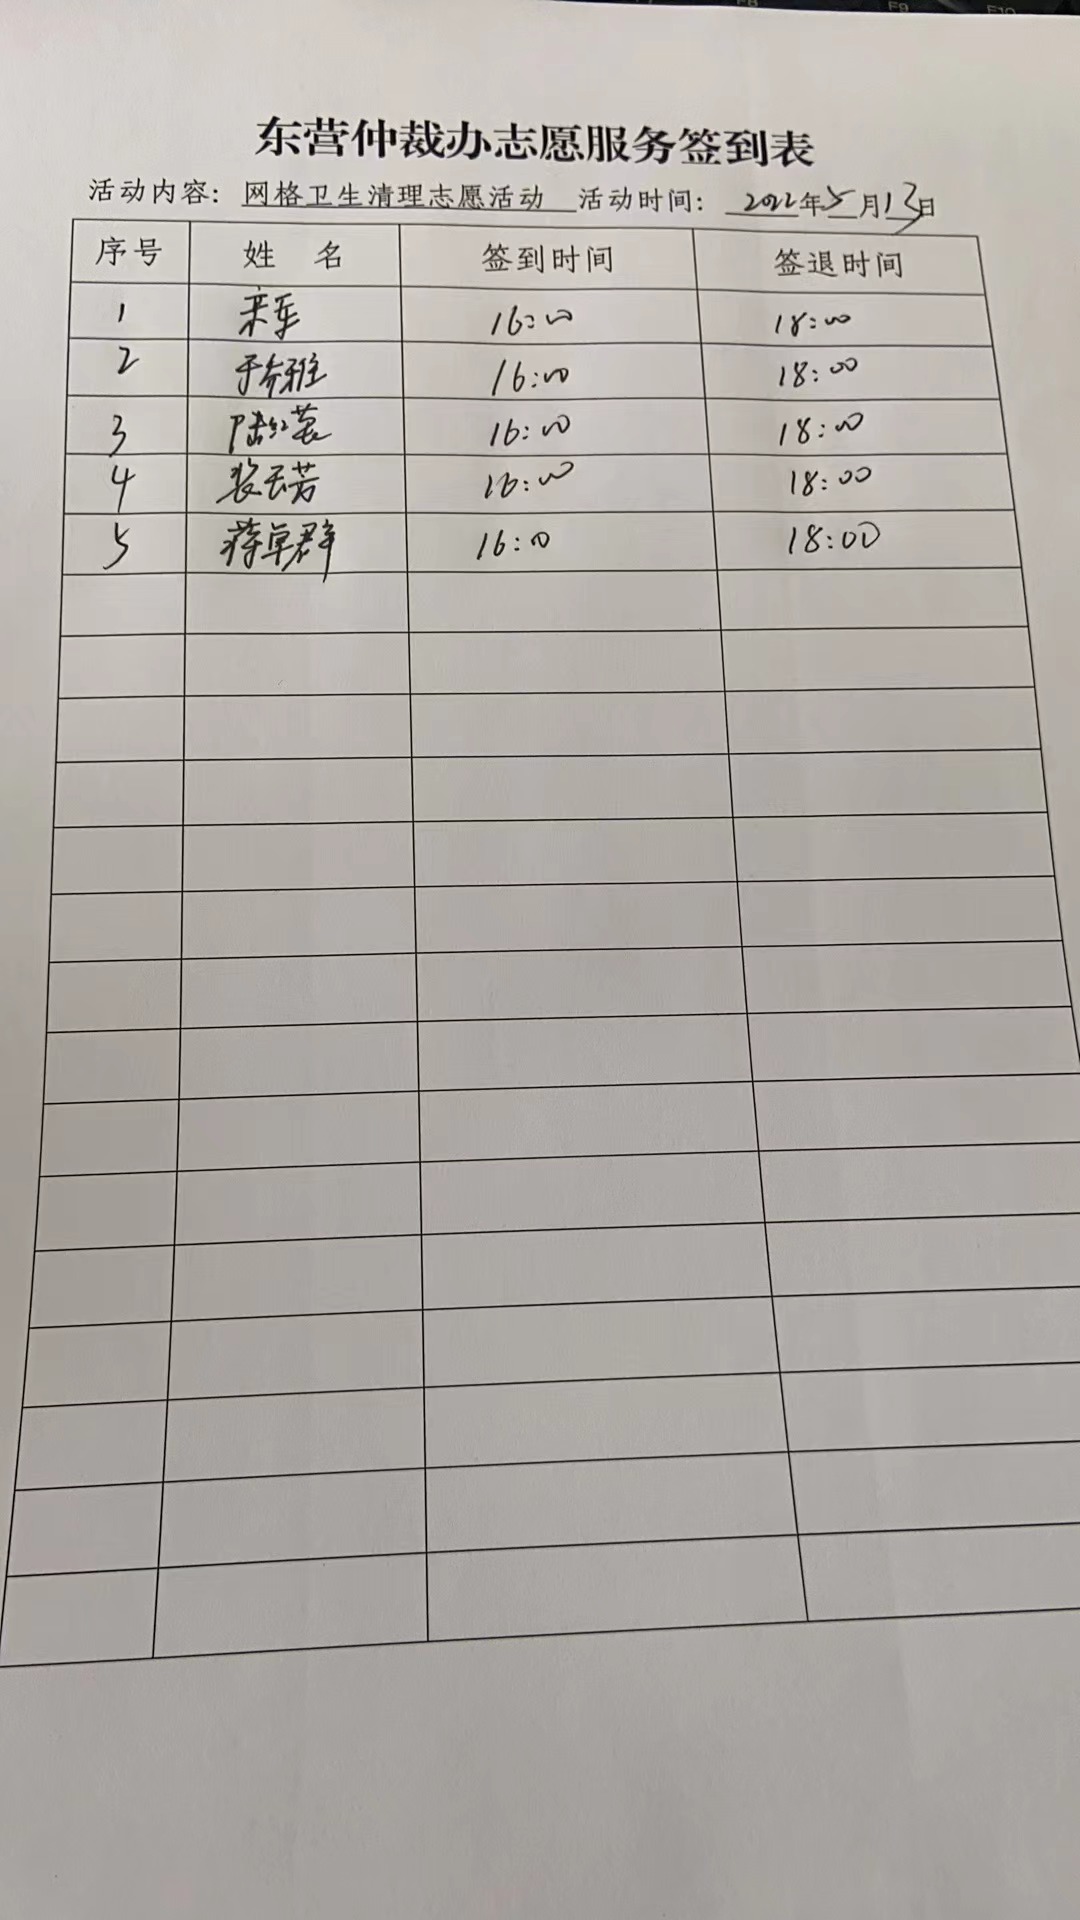 东营仲裁办志愿服务签到表
活动内容: 网格卫生清理志愿活动 活动时间: 2022年5月13日
序号 姓名 签到时间 签退时间
1 16:00 18:00
2 16:00 18:00
3 16:00 18:00
4 16:00 18:00
5 蒋卓群 16:0 18:00